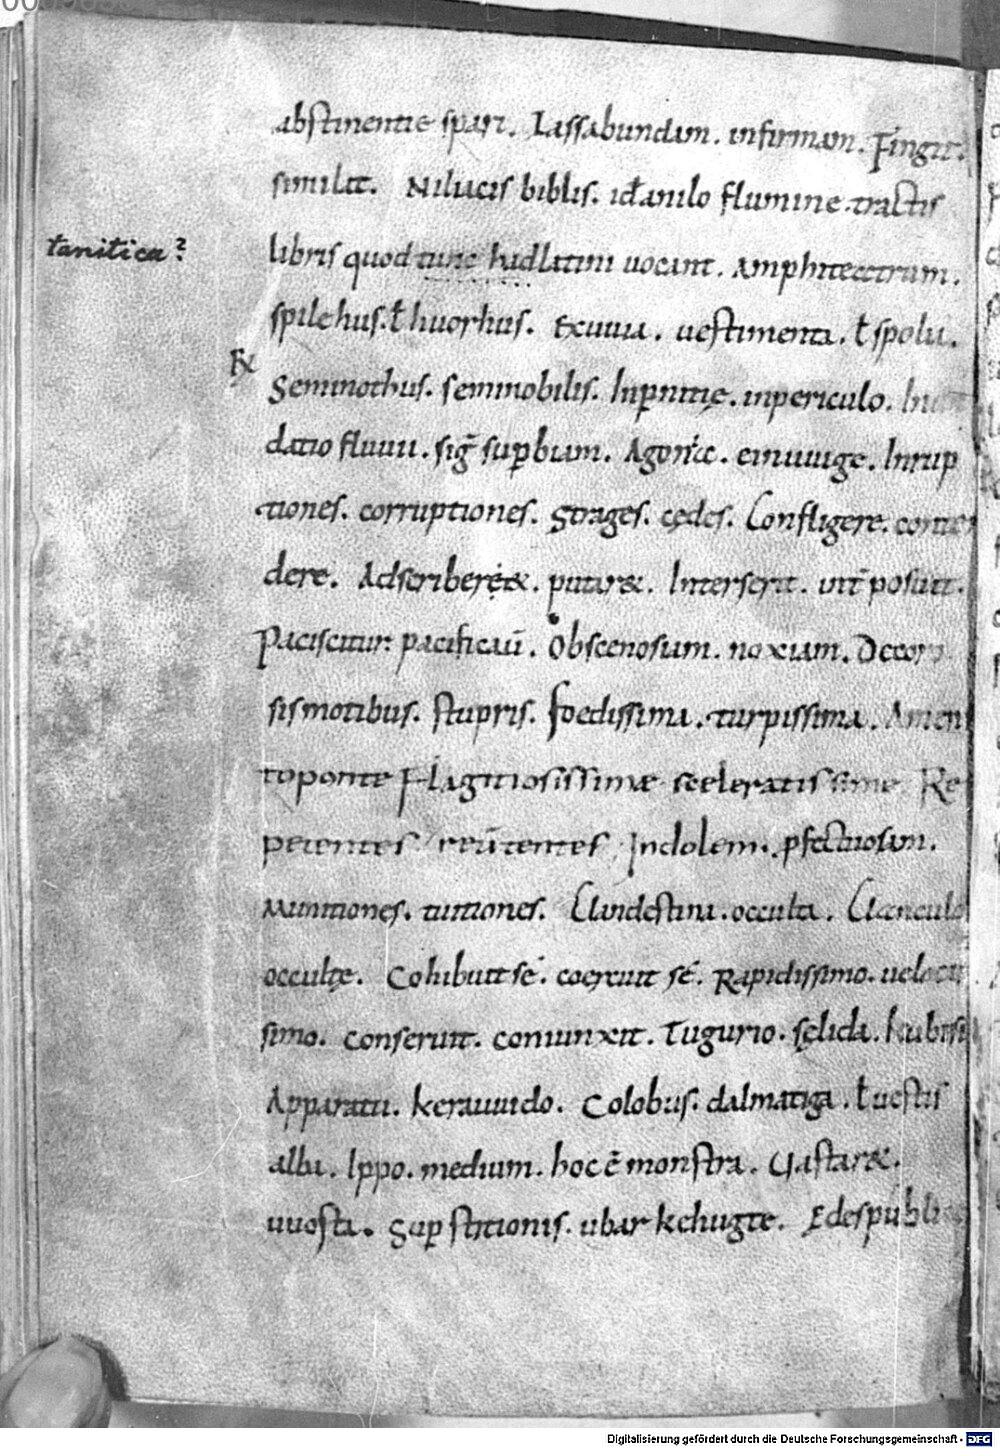 abstinentie spari. Lassabundam. infirmam. Fingit.
similat. Niliacis biblis. id ̵ anilo flumine tractis
tanitica?
libris quod tunc latini vocant. Amphiteatrum.
spilehus. ł huorhus. Exuvia. uestimenta. ł spolia.
Rx
Seminothus. seminobilis. Inꝑnitię. inpericulo.
datio fluuii. sig̃ suꝑbiam. Agonic. einuuige. Inrup
tiones. corruptiones. Strages. cędes. Confligere. conten
dere. Adscriberęt&. putar&. Interserit. posuit.
Paciscitur pacificaū. Obscenosum. noxiam. Decor
sis motibus. stupris. foedissima. turpissima. Amen
toponte Flagitiosissimæ sceleratissime Re
petentes Indolem. ꝓfectuosam.
Munitiones. tuitiones. Clandestina. occulta. Clancula
occultę. Cohibuit sé. coercuit sé. Rapidissimo. uelocis
simo. Conseruit. coniunxit. Tugurio. sęlida.
Apparatu. kerauuido. Colobus. dalmatiga. ł uestis
alba. Ippo. medium. hoc ē monstra. Uastar&.
uuosta. Suꝑstitionis. ubarkehugte. Edespublic
Digitalisierung gefördert durch die Deutsche Forschungsgemeinschaft - DFG